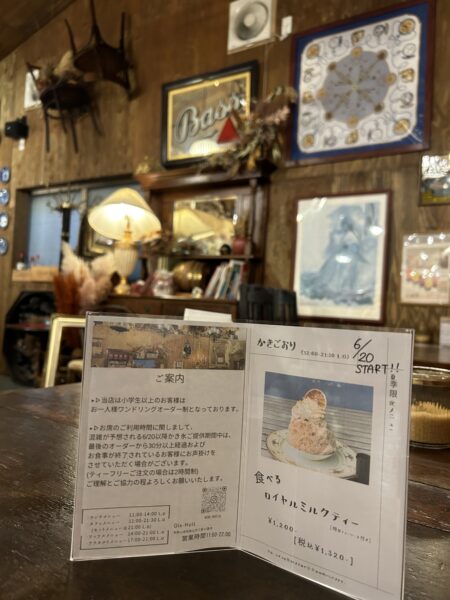 Bass
ご案内
・▷当店は小学生以上のお客様は
お一人様ワンドリングオーダー制となっております。
・▷お席のご利用時間に関しまして、
混雑が予想される6/20以降かき氷ご提供期間中は、
最後のオーダーから30分以上経過および
お食事が終了されているお客様にお声掛けを
させていただく場合がございます。
(ティーフリーご注文の場合は2時間制)
ご理解とご協力の程よろしくお願いいたします。
ランチメニュー 11:00-14:00 L.o
営業時間11:00-22:00
かきごおり
6/20
START!!
食べる
ロイヤルミルクティー
¥1,200.
[税込¥1,320.]